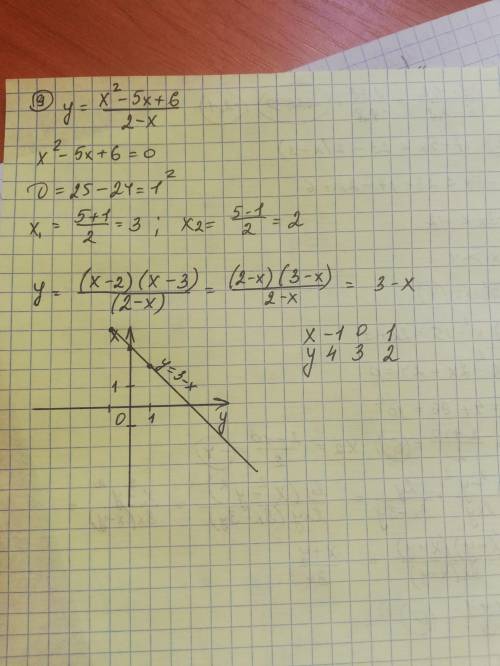 ⑨ y = (x² - 5x + 6)/(2 - x)
x² - 5x + 6 = 0
D = 25 - 24 = 1²
x₁ = (5+1)/2 = 3 ; x₂ = (5-1)/2 = 2
y = ((x-2)(x-3))/((2-x)) = ((2-x)(3-x))/(2-x) = 3 - x
x -1 0 1
y 4 3 2
x
y = 3-x
1
y
0 1